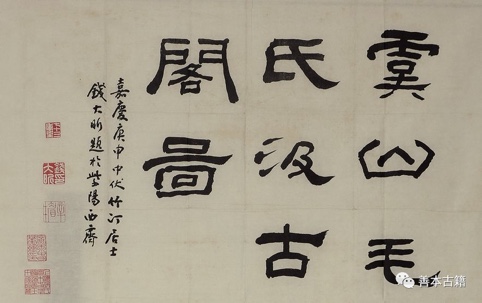 虞山毛
氏汲古
閣圖
嘉慶庚申中伏竹汀居士
錢大昕題於紫陽西齋
善本古籍